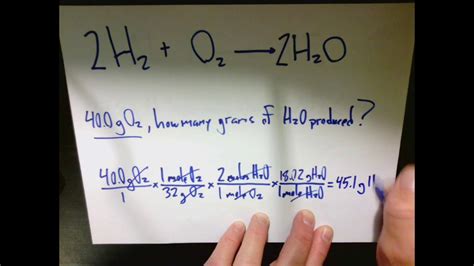 2H₂ + O₂ → 2H₂O
40.0g O₂, how many grams of H₂O produced?
40.0g O₂/1 × 1 mole O₂/32g O₂ × 2 moles H₂O/1 mole O₂ × 18.02g H₂O/1 mole H₂O = 45.1g